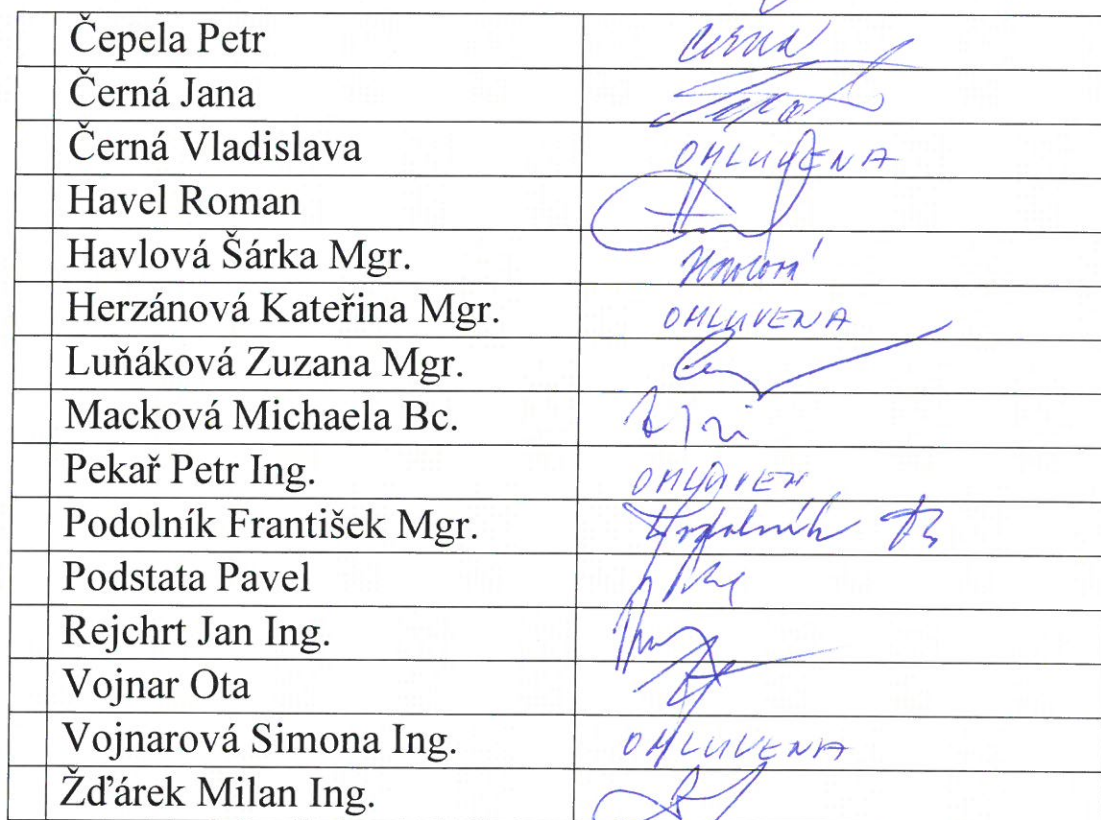 Čepela Petr Černá
Černá Jana
Černá Vladislava OMLUVENA
Havel Roman
Havlová Šárka Mgr. Havlová
Herzánová Kateřina Mgr. OMLUVENA
Luňáková Zuzana Mgr.
Macková Michaela Bc.
Pekař Petr Ing. OMLUVEN
Podolník František Mgr. Podolník
Podstata Pavel
Rejchrt Jan Ing.
Vojnar Ota
Vojnarová Simona Ing. OMLUVENA
Žďárek Milan Ing.